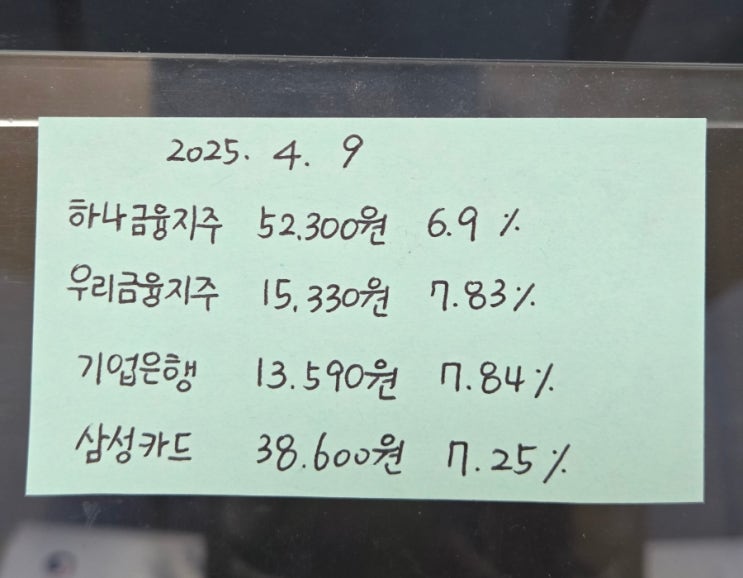 2025. 4. 9
하나금융지주 52,300원 6.9 %
우리금융지주 15,330원 7.83%
기업은행 13.590원 7.84%
삼성카드 38.600원 7.25%